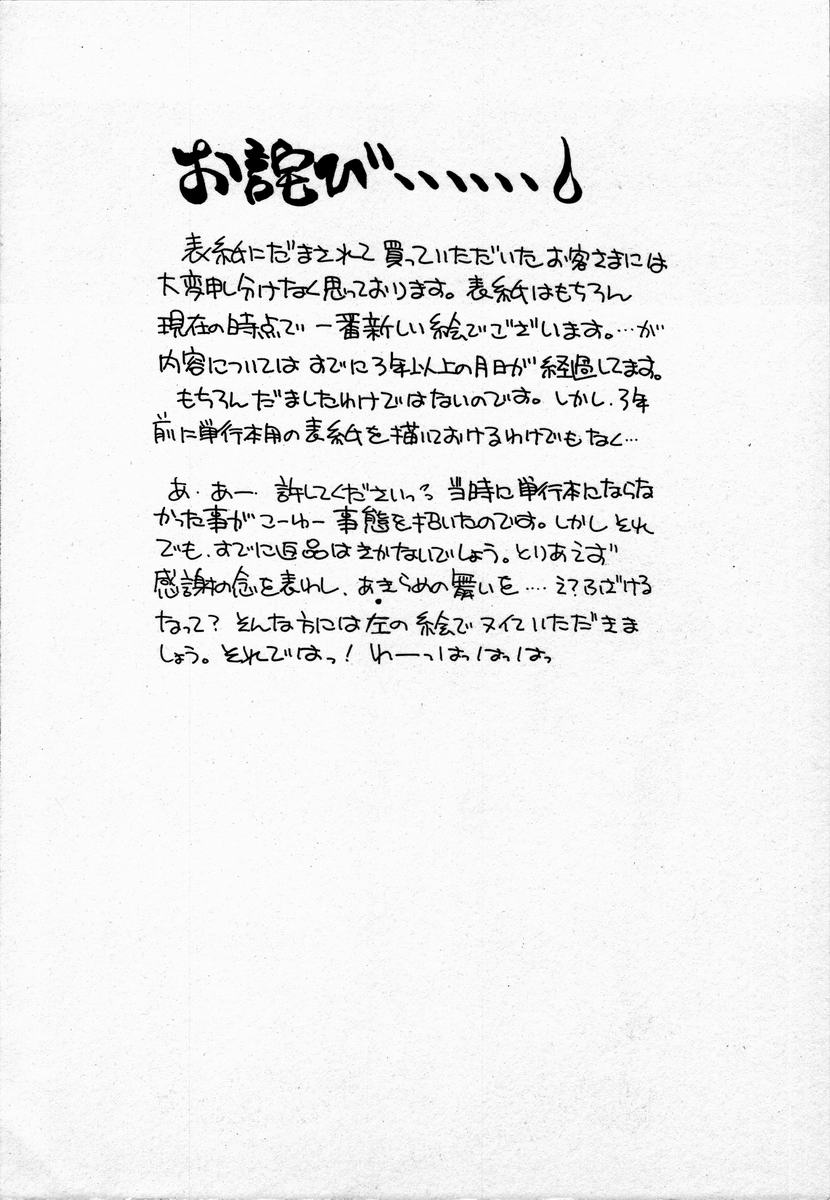 お詫び、、、、、、
表紙にだまされて買っていただいたお客さまには
大変申し分けなく思っております。表紙はもちろん
現在の時点で一番新しい絵でございます。…が
内容についてはすでに3年以上の月日が経過してます。
もちろんだましたわけではないのです。しかし、3年
前に単行本用の表紙を描いておけるわけでもなく…
あ・あー・許してくださいっ？当時に単行本にならな
かった事がこーゆー事態を招いたのです。しかしそれ
でも、すでに返品はきかないでしょう。とりあえず
感謝の念を表わし、あきらめの舞いを…え？ふざける
なって？そんな方には左の絵でヌイていただきま
しょう。それではっ！わーっはっはっはっ